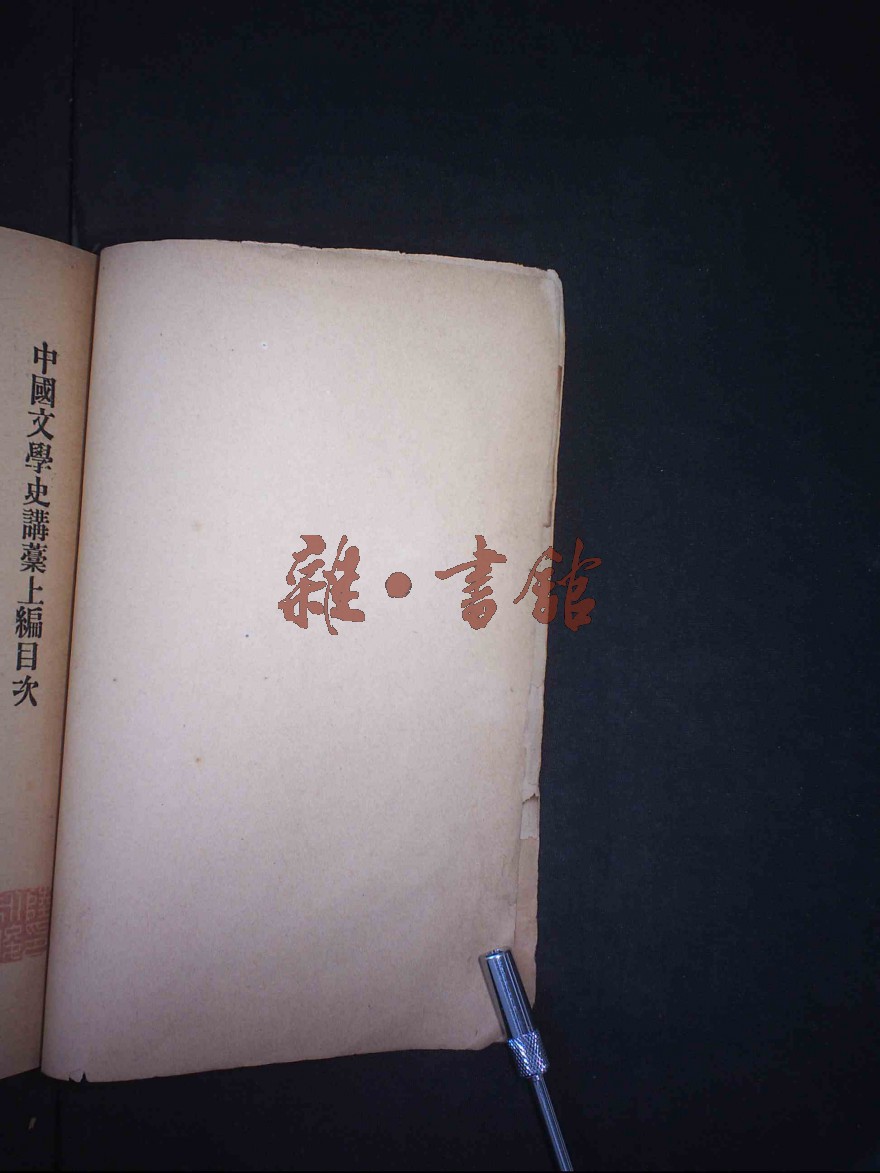 中國文學史講藁上編目次
雜·書館